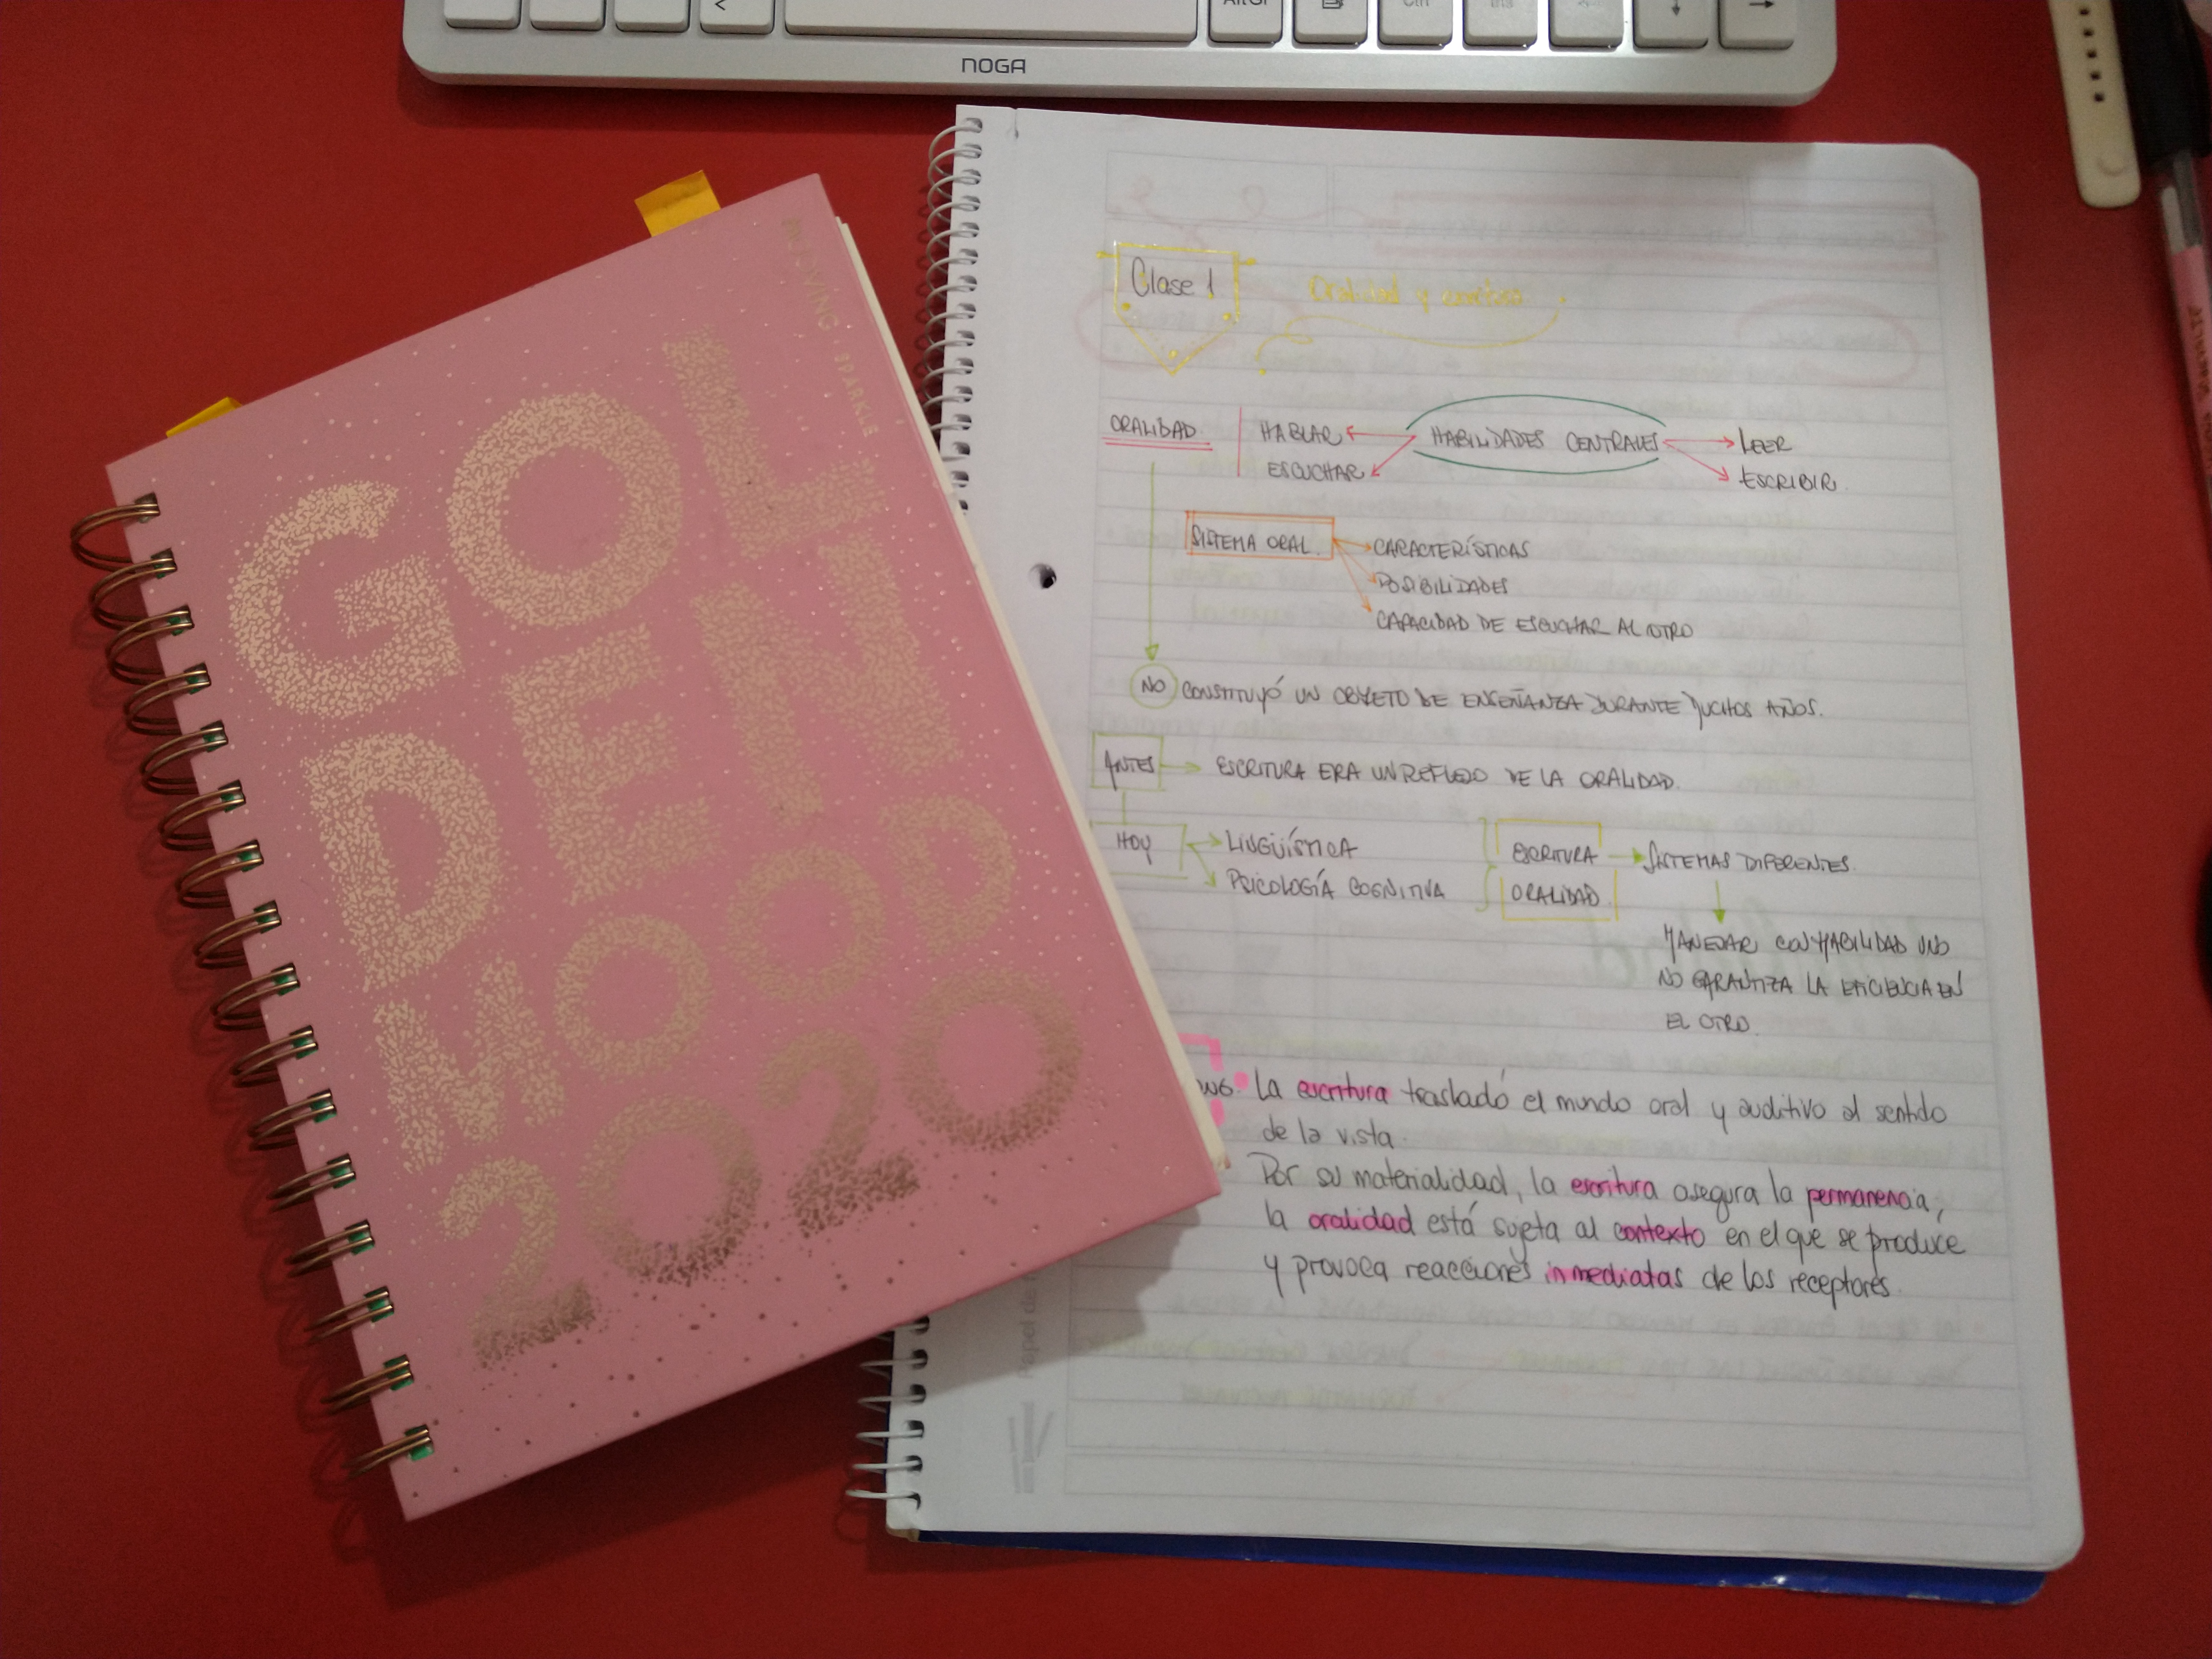 AltGr
Ctrl
Ins
NOGA
GOL
DEN
MOOD
2020
SPARKLE
Clase 1
Oralidad y escritura
ORALIDAD
HABLAR
HABILIDADES CENTRALES
LEER
ESCUCHAR
ESCRIBIR
SISTEMA ORAL
CARACTERÍSTICAS
POSIBILIDADES
CAPACIDAD DE ESCUCHAR AL OTRO
NO CONSTITUYÓ UN OBJETO DE ENSEÑANZA DURANTE MUCHOS AÑOS.
ANTES
ESCRITURA ERA UN REFLEJO DE LA ORALIDAD.
HOY
LINGÜÍSTICA
ESCRITURA
SISTEMAS DIFERENTES.
PSICOLOGÍA COGNITIVA
ORALIDAD
MANEJAR CON HABILIDAD UNO
NO GARANTIZA LA EFICIENCIA EN
EL OTRO.
La escritura trasladó el mundo oral y auditivo al sentido
de la vista.
Por su materialidad, la escritura asegura la permanencia,
la oralidad está sujeta al contexto en el que se produce
y provoca reacciones inmediatas de los receptores.
Papel de